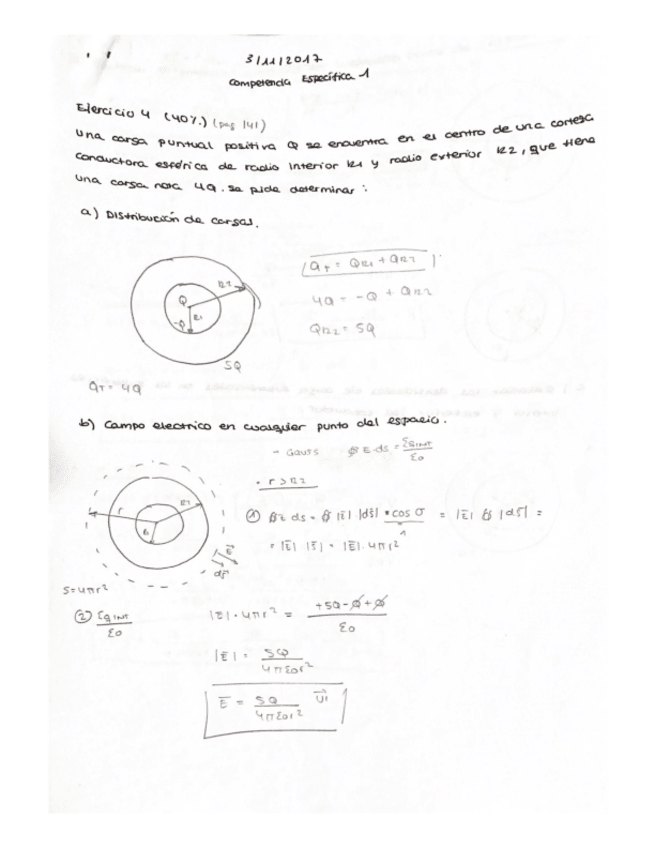 3/11/2017
Competencia Específica 1
Ejercicio 4 (40%) (pag 141)
Una carga puntual positiva Q se encuentra en el centro de una corteza
conductora esférica de radio interior R1 y radio exterior R2, que tiene
una carga neta 4Q. Se pide determinar:
a) Distribución de cargas.
QT = QR1 + QR2
4Q = -Q + QR2
QR2 = 5Q
R2
Q
R1
-Q
5Q
QT = 4Q
b) Campo electrico en cualquier punto del espacio.
- Gauss ∯ E·ds = Σq INT / εo
• r > R2
① ∯ E ds = ∯ |E| |ds| • cos σ = |E| ∯ |ds| =
1
= |E| |S| = |E| 4πr²
r
R2
E
ds
S = 4πr²
② Σq INT / εo
|E| · 4πr² = +5Q - Q + Q / εo
|E| = 5Q / 4πεor²
E = 5Q / 4πεor²